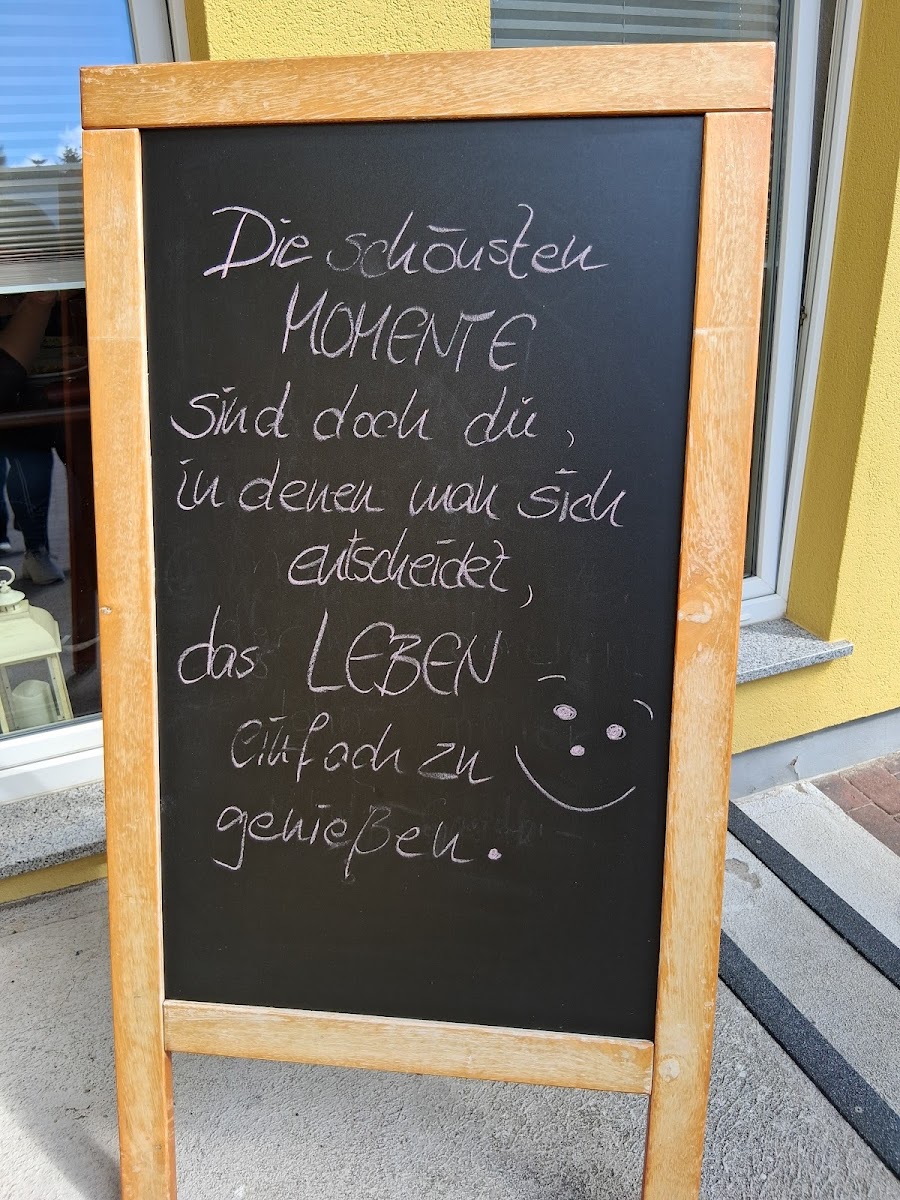 Die schönsten
MOMENTE
sind doch die,
in denen man sich
entscheidet,
das LEBEN
einfach zu
genießen.